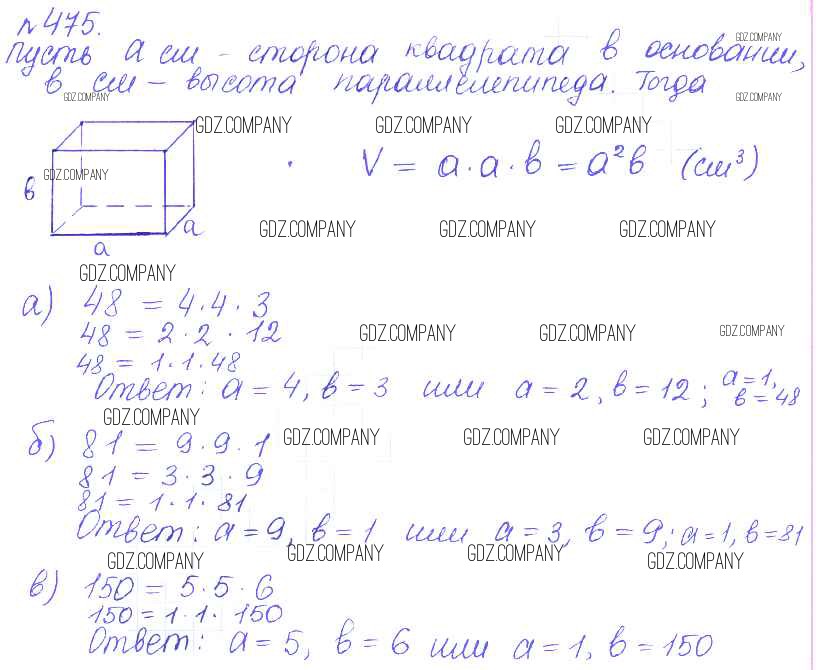 №475.
Пусть a см - сторона квадрата в основании,
в см - высота параллелепипеда. Тогда
GDZ.COMPANY
GDZ.COMPANY GDZ.COMPANY
GDZ.COMPANY GDZ.COMPANY GDZ.COMPANY
V = a·a·в = a²в (см³)
в GDZ.COMPANY
a
a
GDZ.COMPANY GDZ.COMPANY GDZ.COMPANY
GDZ.COMPANY
а) 48 = 4·4·3
48 = 2·2·12
GDZ.COMPANY GDZ.COMPANY GDZ.COMPANY
48 = 1·1·48
Ответ: a = 4, в = 3 или a = 2, в = 12; a = 1,
в = 48
GDZ.COMPANY
б) 81 = 9·9·1
GDZ.COMPANY GDZ.COMPANY GDZ.COMPANY
81 = 3·3·9
81 = 1·1·81
Ответ: a = 9, в = 1 или a = 3, в = 9; a = 1, в = 81
GDZ.COMPANY GDZ.COMPANY GDZ.COMPANY GDZ.COMPANY
в) 150 = 5·5·6
150 = 1·1·150
Ответ: a = 5, в = 6 или a = 1, в = 150